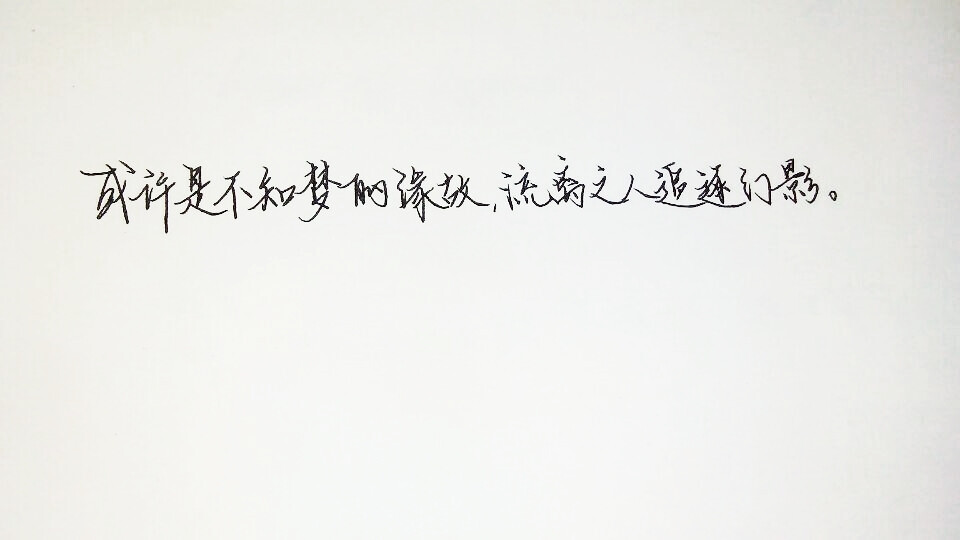 或许是不知梦的缘故,流离之人追逐幻影。